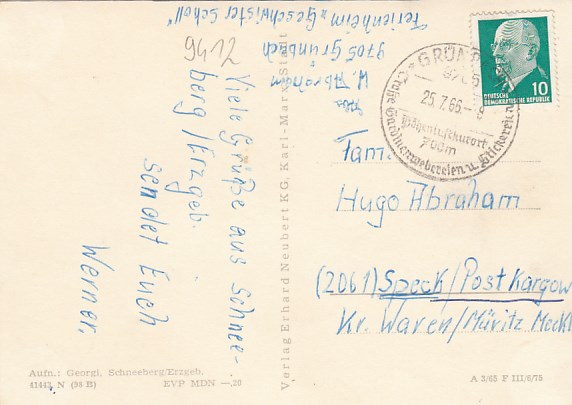 W. Abraham
9705 Grünbach
Ferienheim „Geschwister Scholl"
9412
Viele Grüße aus Schnee-
berg/Erzgeb.
sendet Euch
Werner.
Verlag Erhard Neubert KG, Karl-Marx-Stadt
Aufn.: Georgi, Schneeberg/Erzgeb.
41443 N (98 B) EVP MDN —,20
GRÜN
9705
25.7.66.-8
Höhenluftkurort
700m
Gardinenwebereien u. Stickereien
10
DEUTSCHE
DEMOKRATISCHE REPUBLIK
Fam.
Hugo Abraham
(2061) Speck/Post Kargow
Kr. Waren/Müritz Meckl
A 3/65 F III/6/75